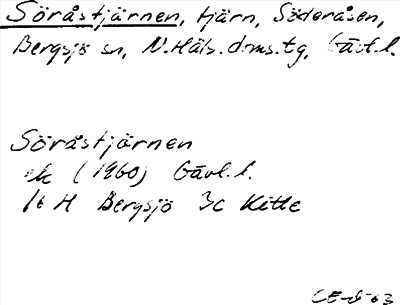 Söråstjärnen, tjärn, Söderåsen,
Bergsjö sn, N.Häls.dms.tg, Gävl.l.
Söråstjärnen
ek (1960) Gävl.l.
16 H Bergsjö 3c Kitte